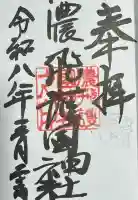 奉拝
濃飛護國神社
令和八年